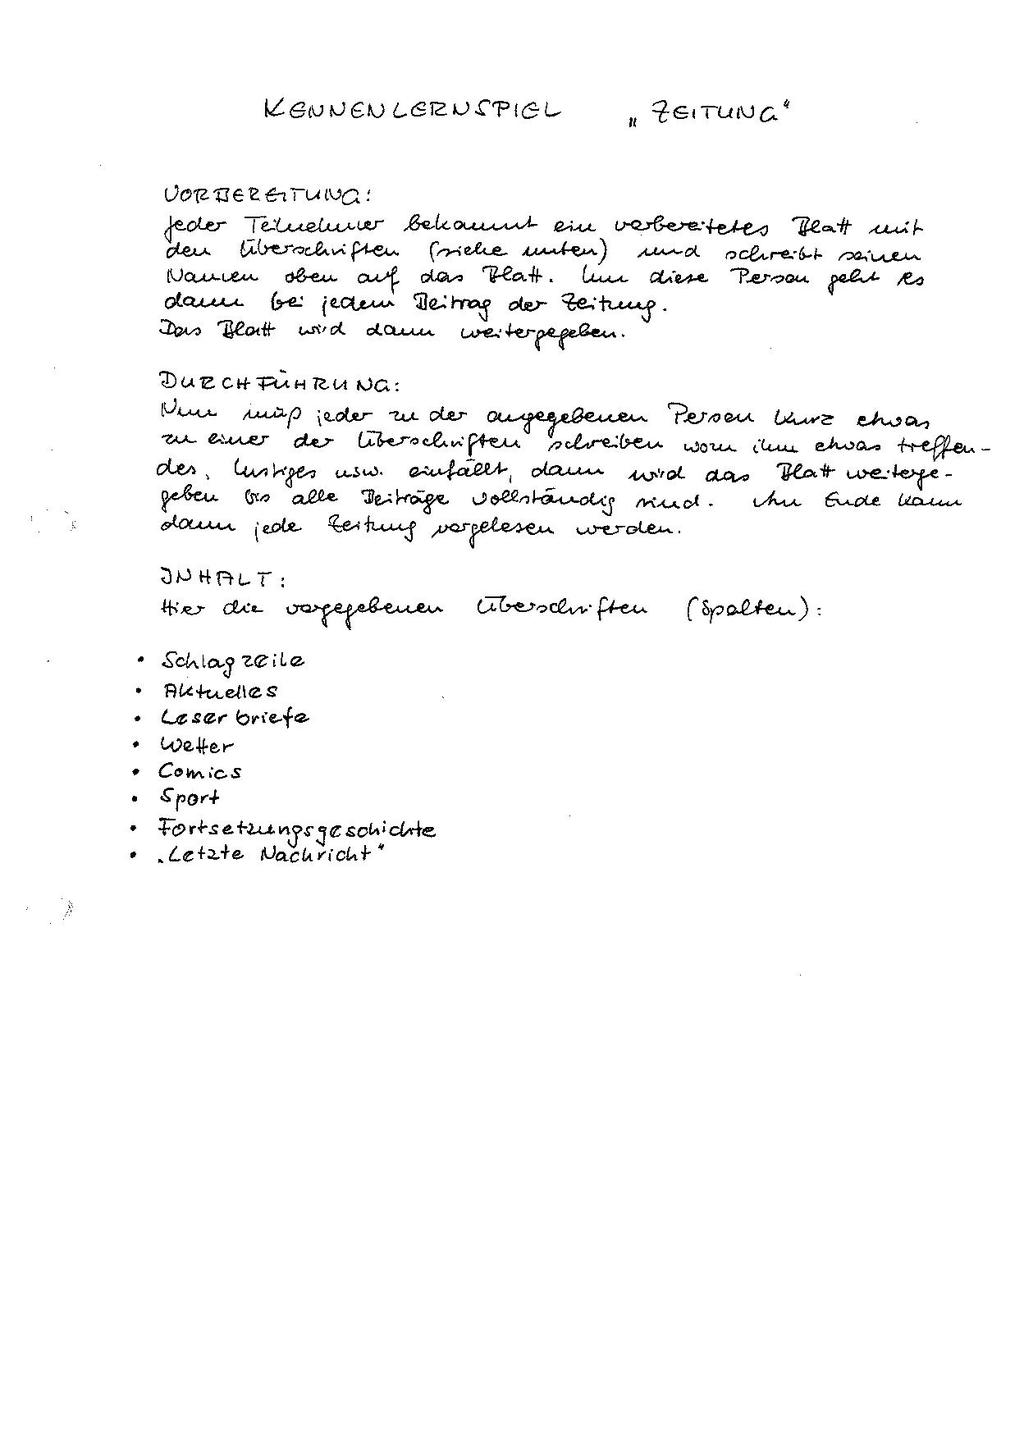 KENNENLERNSPIEL „ZEITUNG“
VORBEREITUNG:
Jeder Teilnehmer bekommt ein vorbereitetes Blatt mit
den Überschriften (siehe unten) und schreibt seinen
Namen oben auf das Blatt. Um diese Person geht es
dann bei jedem Beitrag der Zeitung.
Das Blatt wird dann weitergegeben.
DURCHFÜHRUNG:
Nun muß jeder zu der angegebenen Person kurz etwas
zu einer der Überschriften schreiben wozu ihm etwas treffen-
des, lustiges usw. einfällt, dann wird das Blatt weiterge-
geben bis alle Beiträge vollständig sind. Am Ende kann
dann jede Zeitung vorgelesen werden.
INHALT:
Hier die vorgegebenen Überschriften (Spalten):
• Schlagzeile
• Aktuelles
• Leserbriefe
• Wetter
• Comics
• Sport
• Fortsetzungsgeschichte
• „Letzte Nachricht“